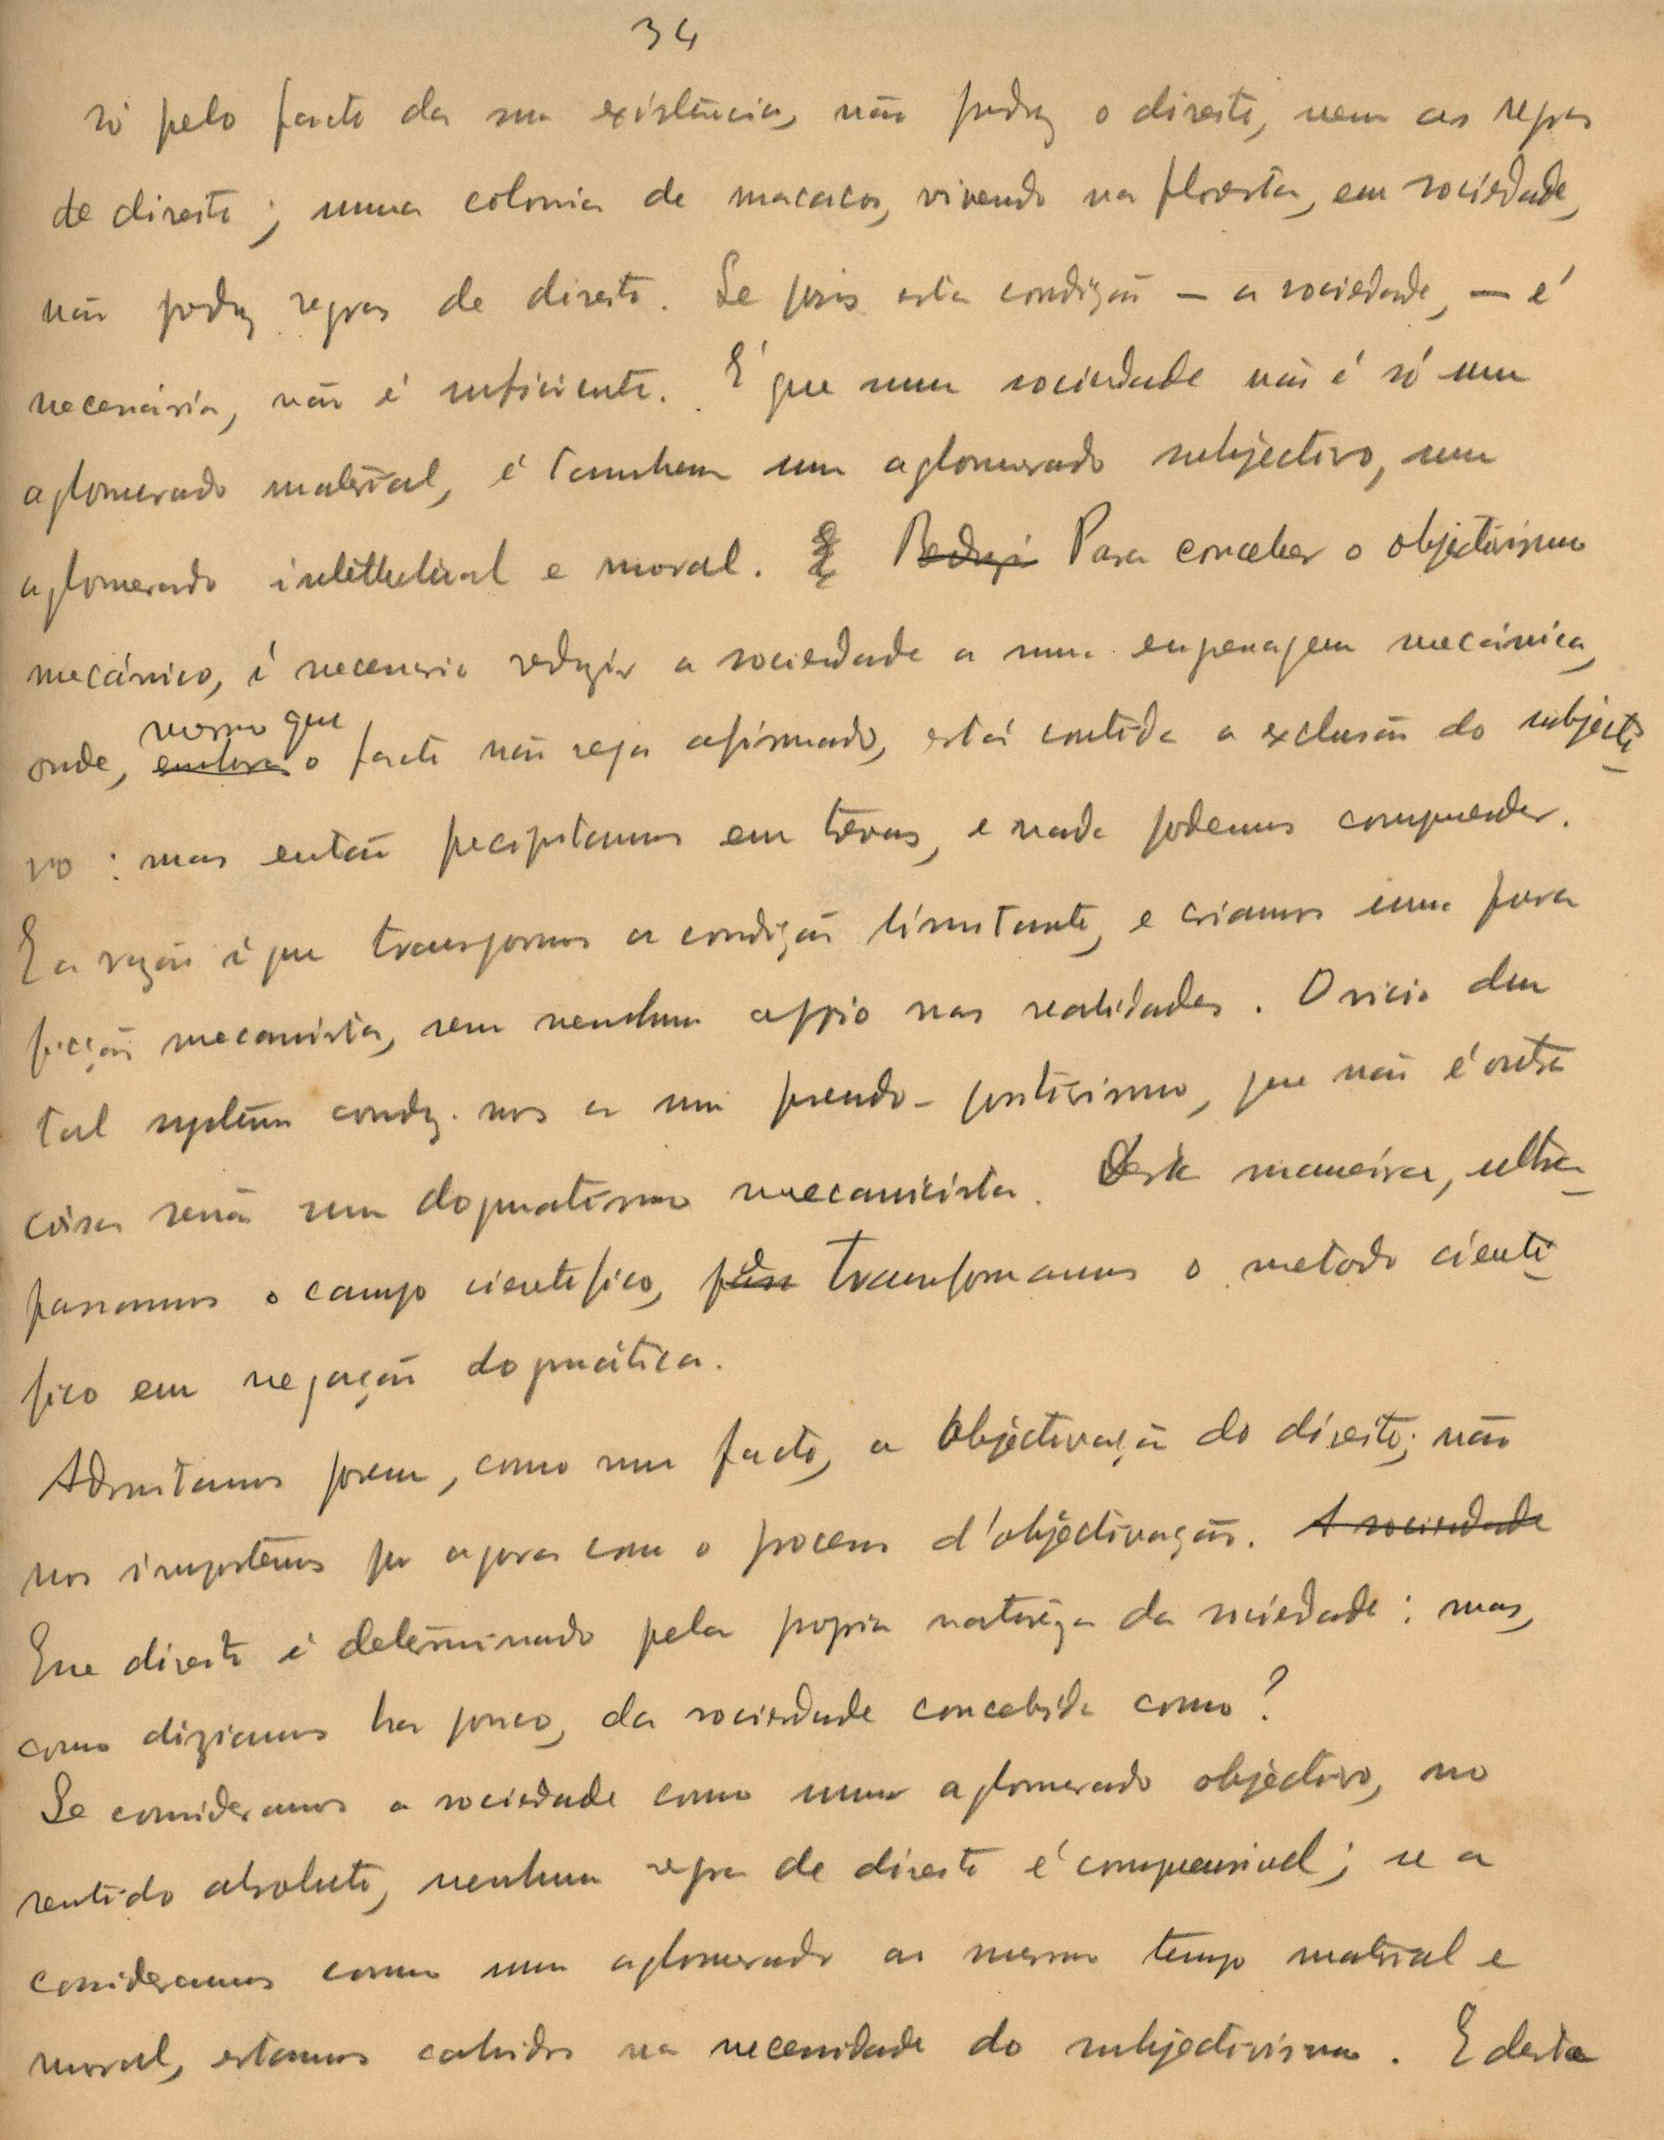 34
só pelo facto da sua existência, não produz o direito, nem as regras
de direito; numa colonia de macacos, vivendo na floresta, em sociedade,
não produz regras de direito. Se pois esta condição – a sociedade, – é
necessária, não é suficiente. É que uma sociedade não é só um
aglomerado material, é tambem um aglomerado subjectivo, um
aglomerado intellectual e moral. E Reduzi Para conceber o objectivismo
mecánico, é necessario reduzir a sociedade a uma engrenagem mecánica,
mesmo que
onde, embora o facto não seja afirmado, está contida a exclusão do subjecti
vo: mas então precipitamos em trevas, e nada podemos comprender.
E a razão é que transpomos a condição limitante, e criamos uma pura
ficção mecanista, sem nenhum appoio nas realidades. O vicio dum
tal systema conduz-nos a um pseudo-positivismo, que não é outra
coisa senão um dogmatismo mecanicista. Desta maneira, ultra
passamos o campo cientifico, transformamos o metodo cienti
fico em negação dogmática.
Admitamos porem, como um facto, a objectivação do direito; não
nos importemos por agora com o processo d'objectivação. A sociedade
Esse direito é determinado pela propria natureza da sociedade: mas,
como diziamos ha pouco, da sociedade concebida como?
Se consideramos a sociedade como um aglomerado objectivo, no
sentido absoluto, nenhuma regra de direito é comprensivel; se a
consideramos como um aglomerado ao mesmo tempo material e
moral, estamos cahidos na necessidade do subjectivismo. E desta